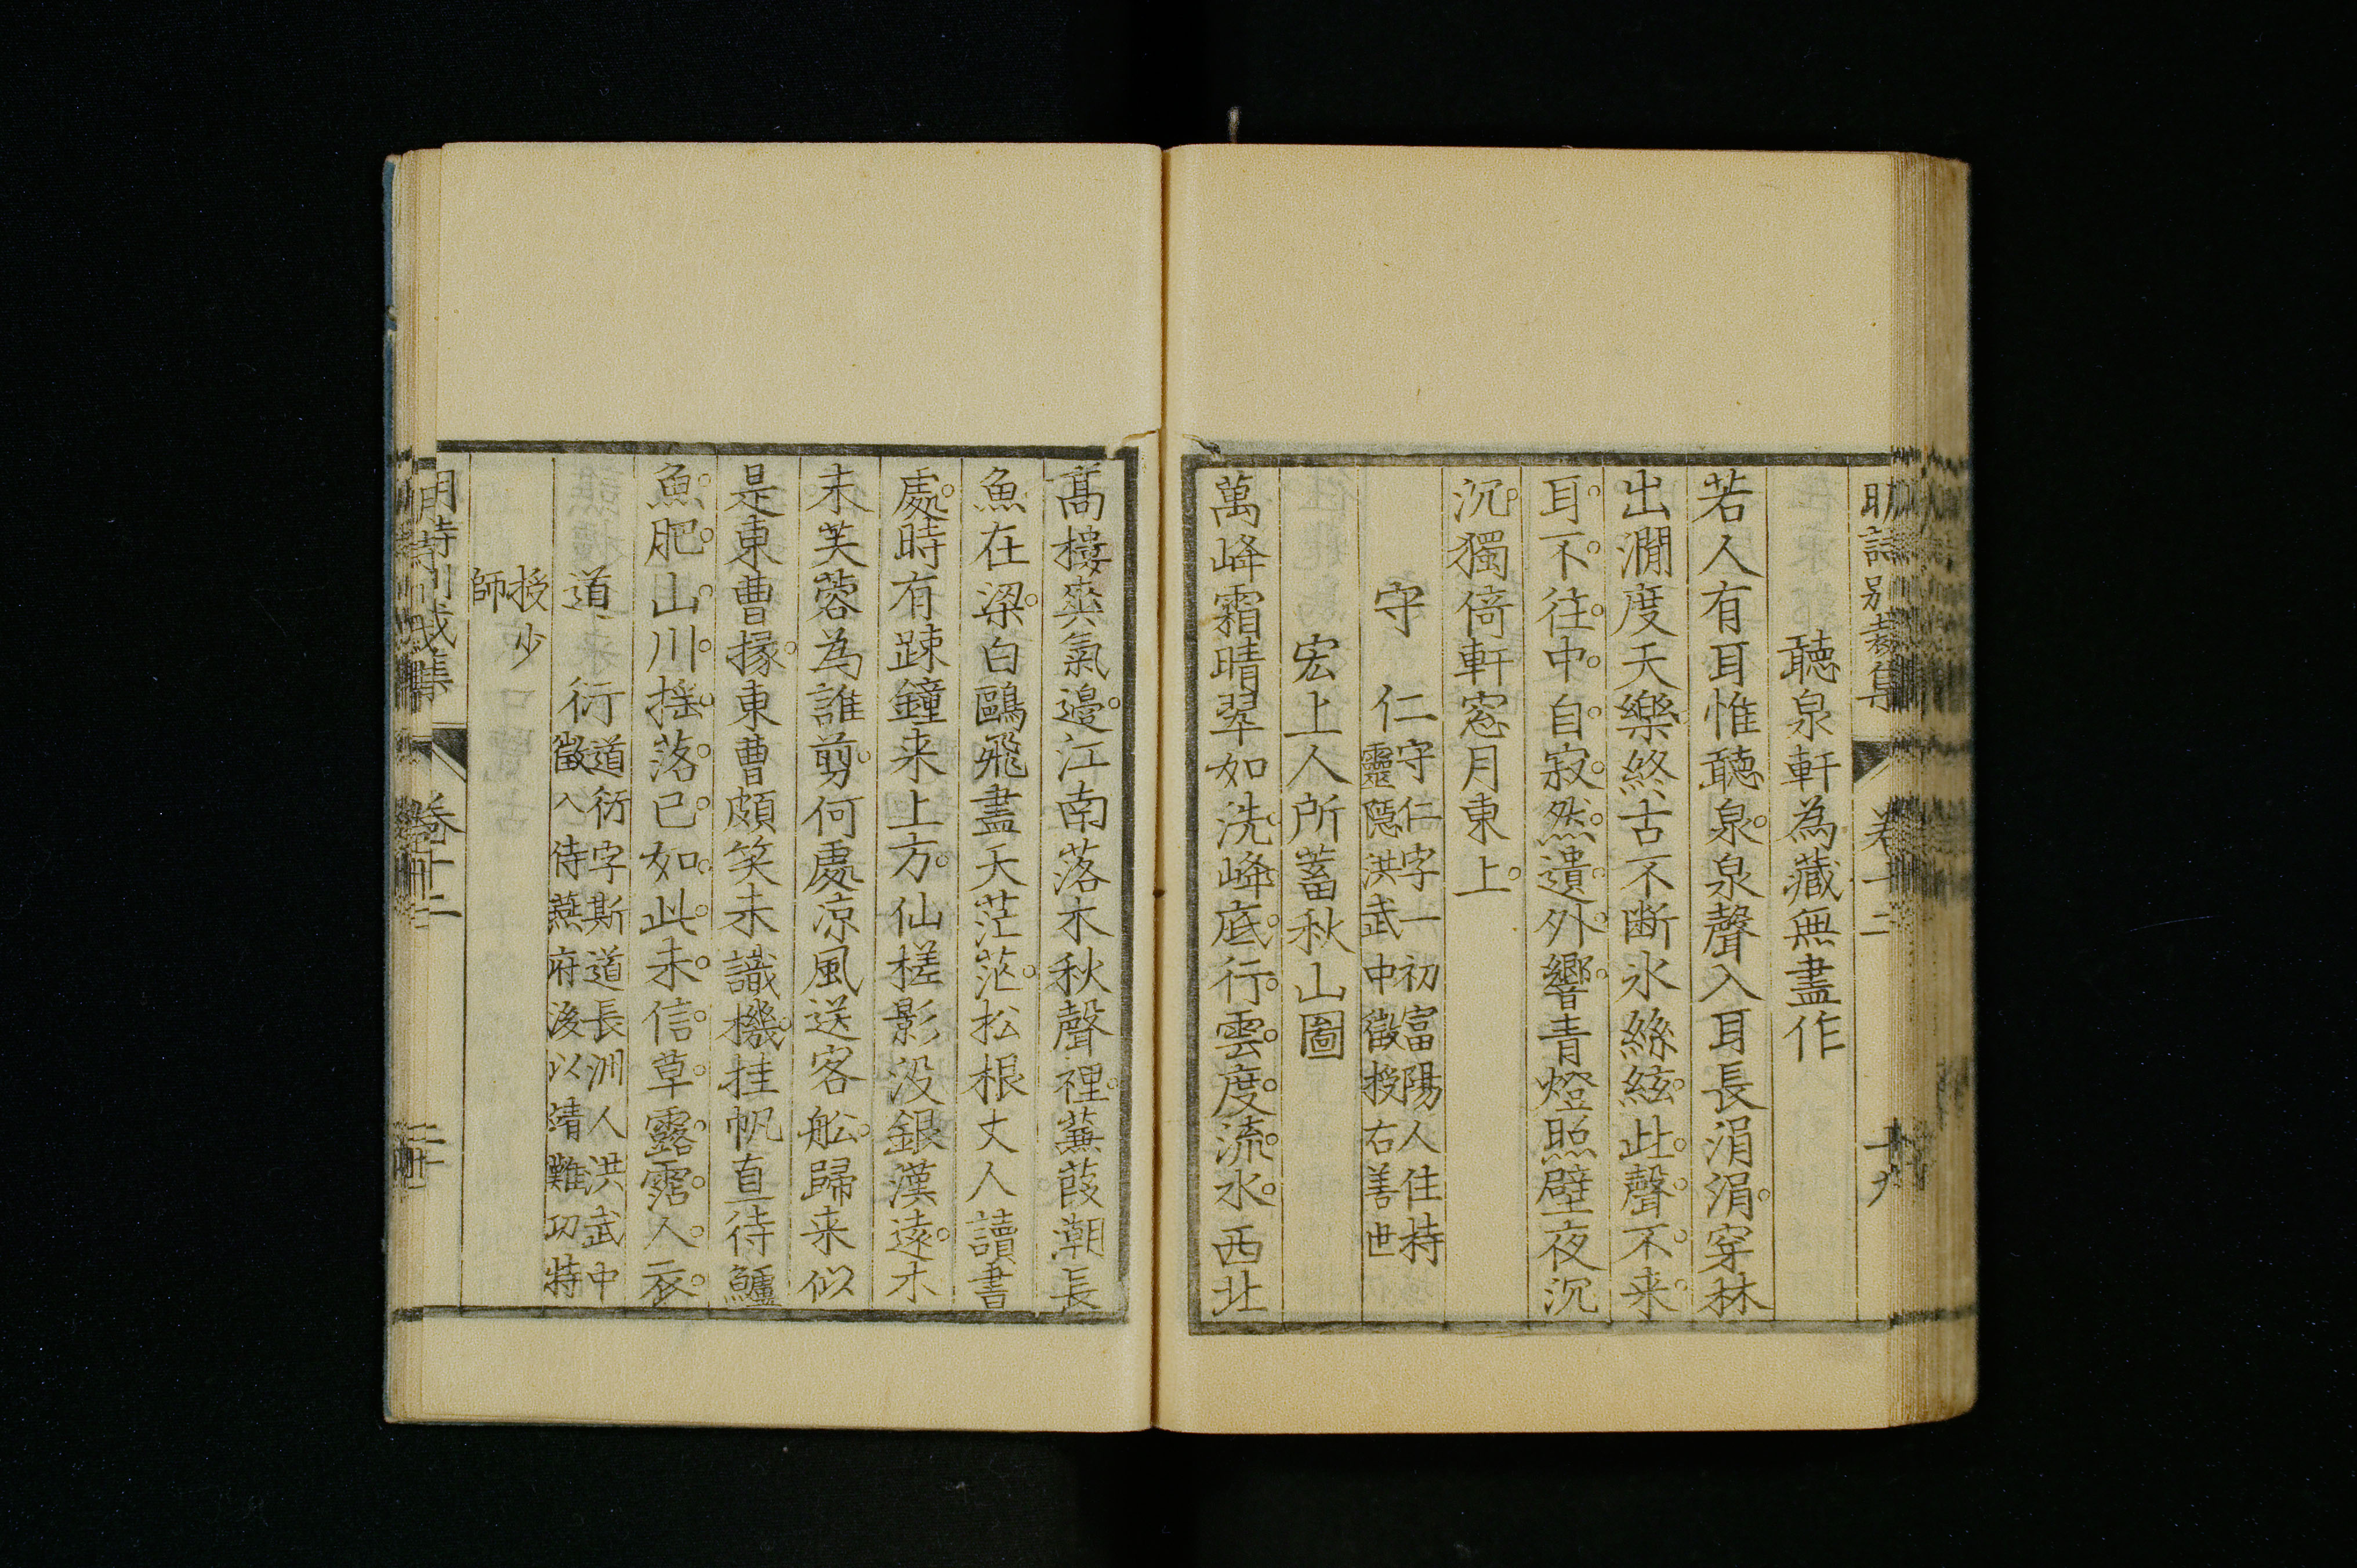 明詩別裁集 卷十二 十九
聽泉軒為藏無盡作
若人有耳惟聽泉泉聲入耳長涓涓穿林
出澗度天樂終古不斷氷絲絃此聲不来
耳不往中自寂然遺外響青燈照壁夜沉
沉獨倚軒窓月東上
守仁 守仁字一初富陽人住持
靈隱洪武中徵授右善世
宏上人所蓄秋山圖
萬峰霜晴翠如洗峰底行雲度流水西北
髙樓爽氣邊江南落木秋聲裡蒹葭潮長
魚在梁白鷗飛盡天茫茫松根丈人讀書
處時有踈鐘来上方仙槎影没銀漢遠木
末芙蓉為誰剪何處凉風送客舩歸来似
是東曹掾東曹頗笑未識機挂帆直待鱸
魚肥山川揺落已如此未信草露霑人衣
道衍 道衍字斯道長洲人洪武中
徵入侍燕府後以靖難功特
授少
師
卷十二